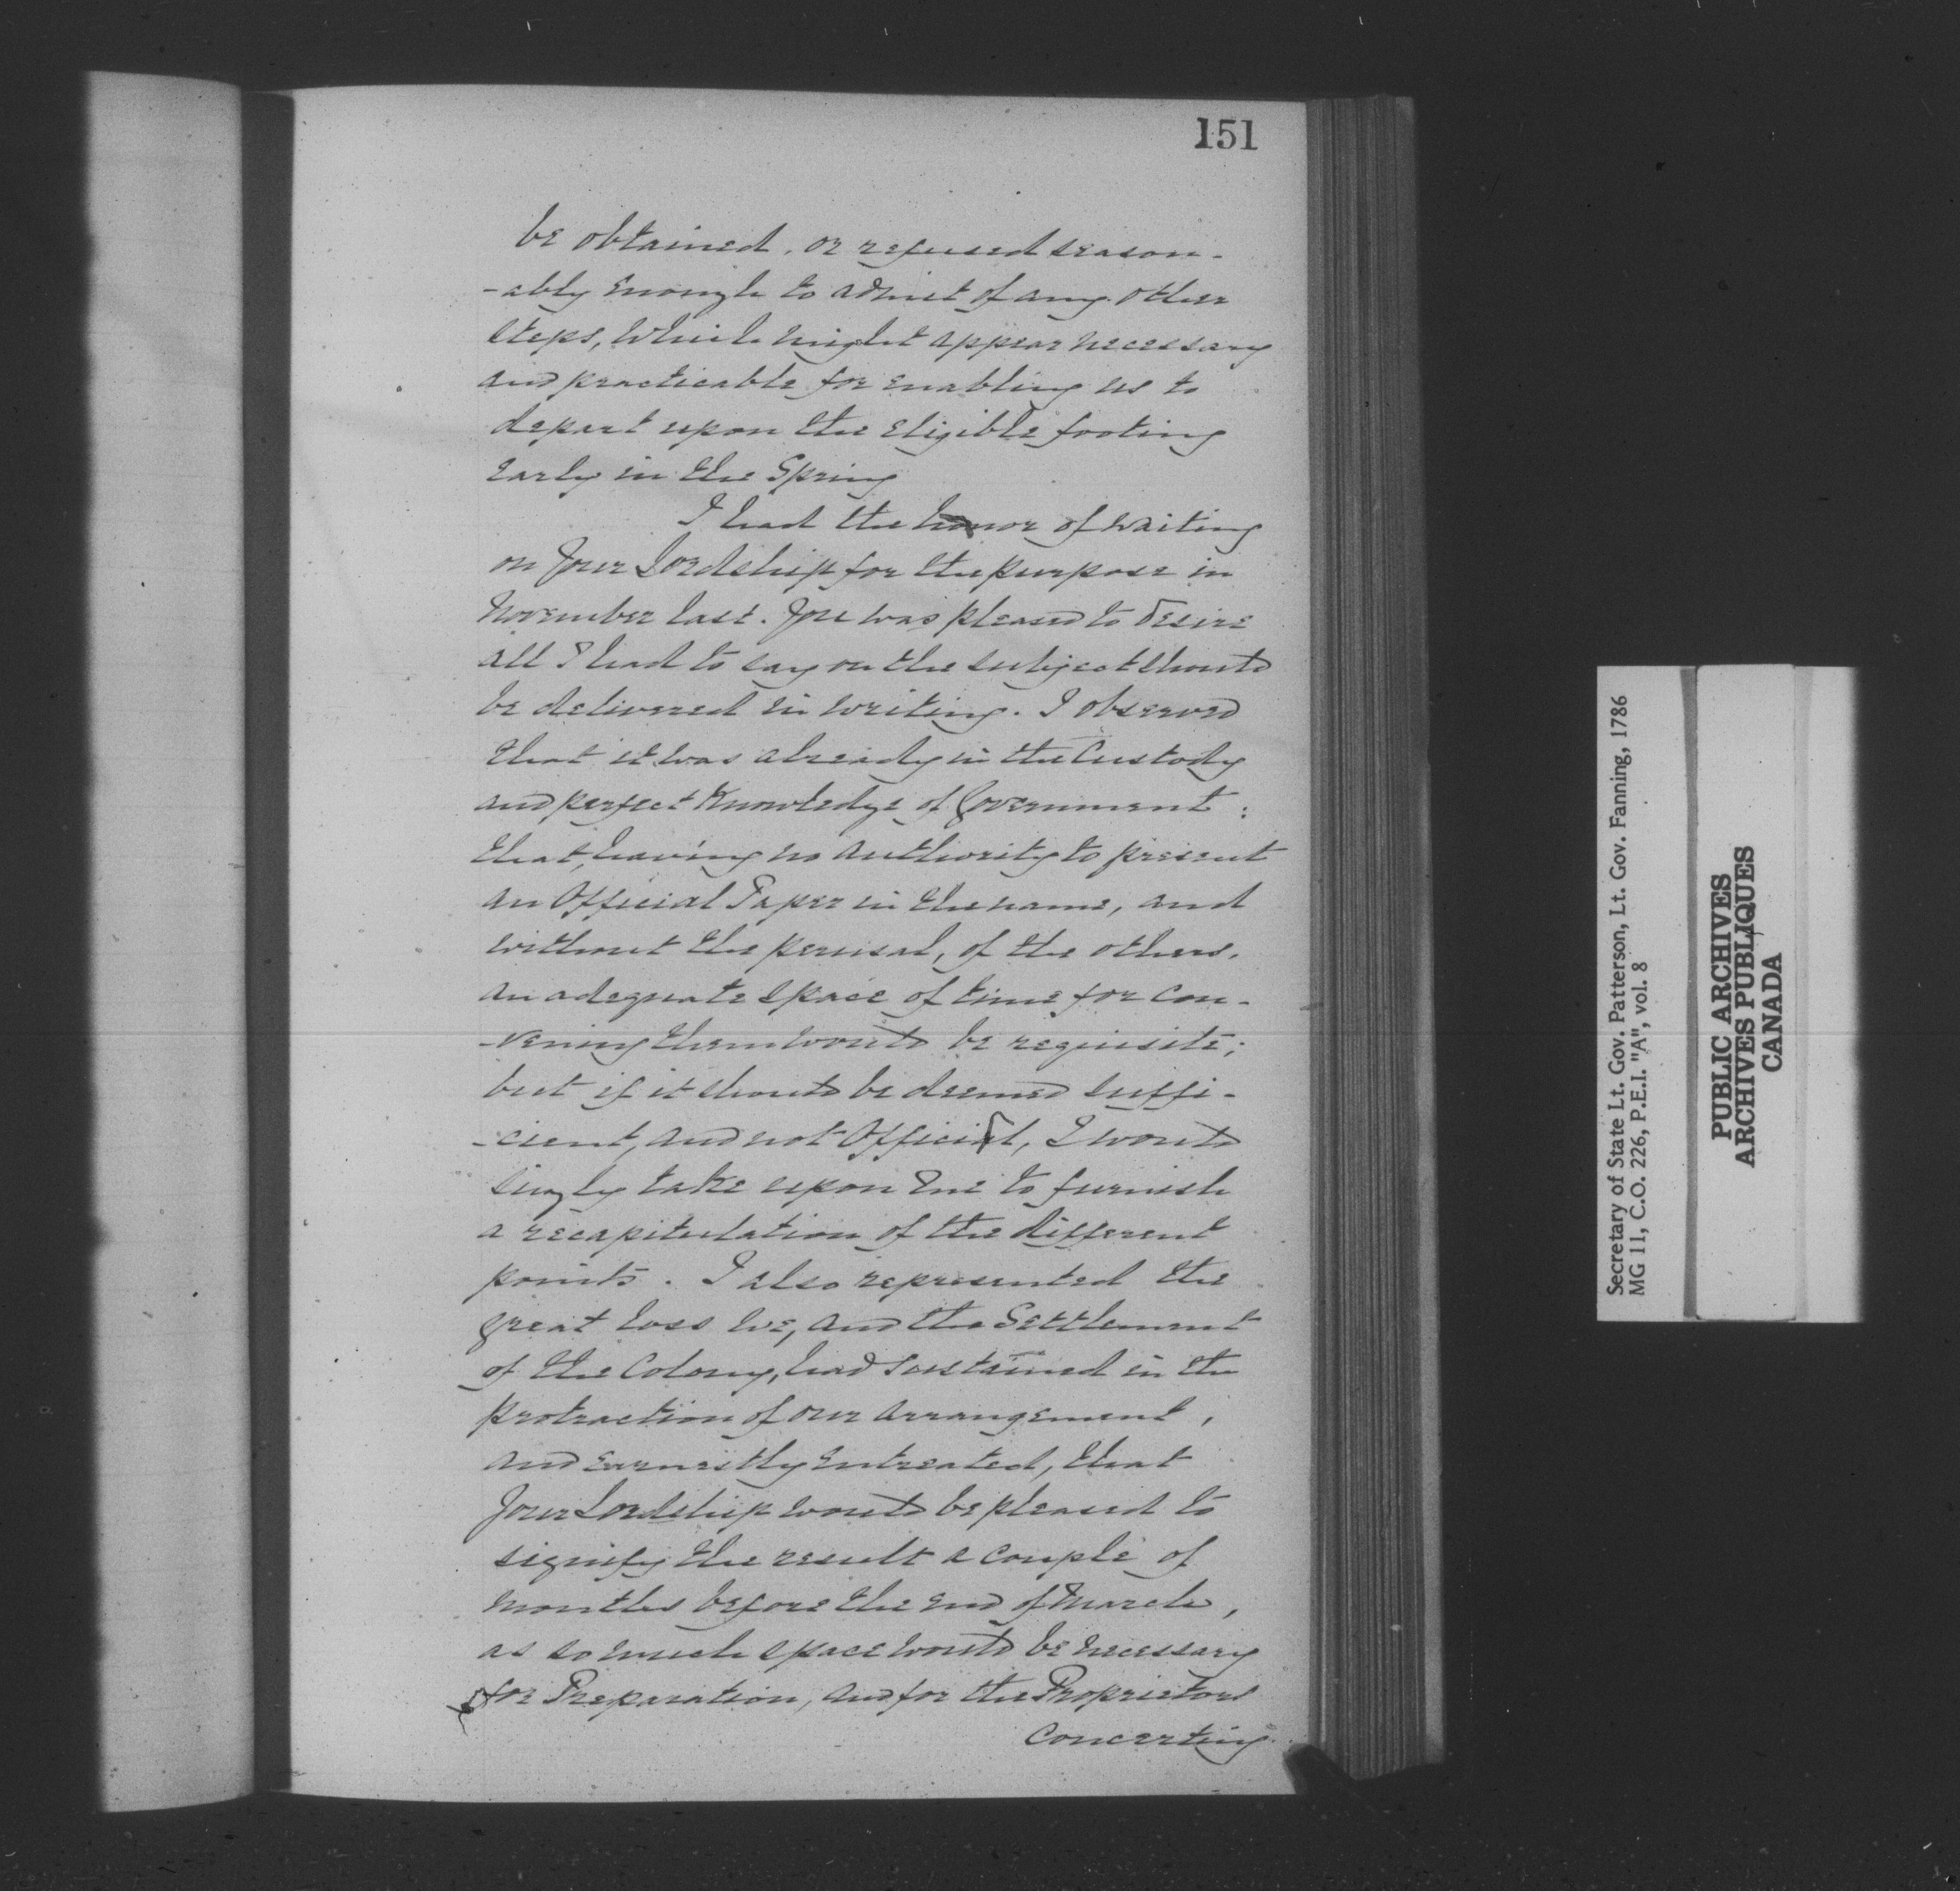 151
be obtained, or refused season-
-ably enough to admit of any other
steps, which might appear necessary
and practicable for enabling us to
depart upon the eligible footing
early in the Spring
I had the honor of waiting
on Your Lordship for the purpose in
November last. You was pleased to desire
all I had to say on the subject should
be delivered in writing. I observed
that it was already in the Custody
and perfect Knowledge of Government:
that, having no authority to present
an Official Paper in the name, and
without the perusal, of the others,
an adequate space of time for con-
-vening them would be requisite;
but if it should be deemed suffi-
-cient, and not Official, I would
singly take upon me to furnish
a recapitulation of the different
points. I also represented the
great loss we, and the Settlement
of the Colony, had sustained in the
protraction of our arrangement,
and earnestly entreated, that
Your Lordship would be pleased to
signify the result a couple of
months before the end of March,
as so much space would be necessary
for Preparation, and for the Proprietors
Concerting
Secretary of State Lt. Gov. Patterson, Lt. Gov. Fanning, 1786
MG 11, C.O. 226, P.E.I. "A", vol. 8
PUBLIC ARCHIVES
ARCHIVES PUBLIQUES
CANADA